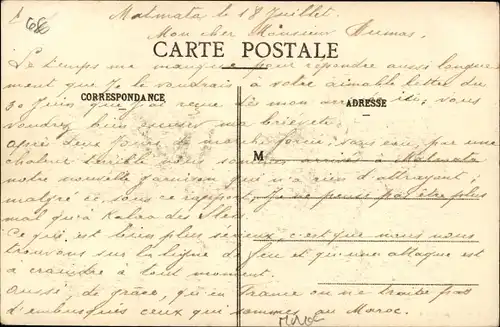 686
Matmata le 18 Juillet.
Mon cher Monsieur Dumas,
CARTE POSTALE
Le temps me manque pour répondre aussi longue
ment que je le voudrais à votre aimable lettre du
CORRESPONDANCE
ADRESSE
30 Juin que j'ai reçue dès mon arrivée ici, vous
voudrez bien excuser ma brièveté.
Après deux jours de marche forcée, sans eau par une
chaleur terrible nous sommes arrivés à Matmata
M
notre nouvelle garnison qui n'a rien d'attrayant;
malgré ce, sous ce rapport, je ne pense pas être plus
mal qu'à Kalaa des Slès.
Ce qui est bien plus sérieux, c'est que nous nous
trouvons sur la ligne de feu et qu'une attaque est
à craindre à tout moment.
Aussi, de grâce, qu'en France on ne traite pas
d'embusqués ceux qui sommes au Maroc.
Maroc